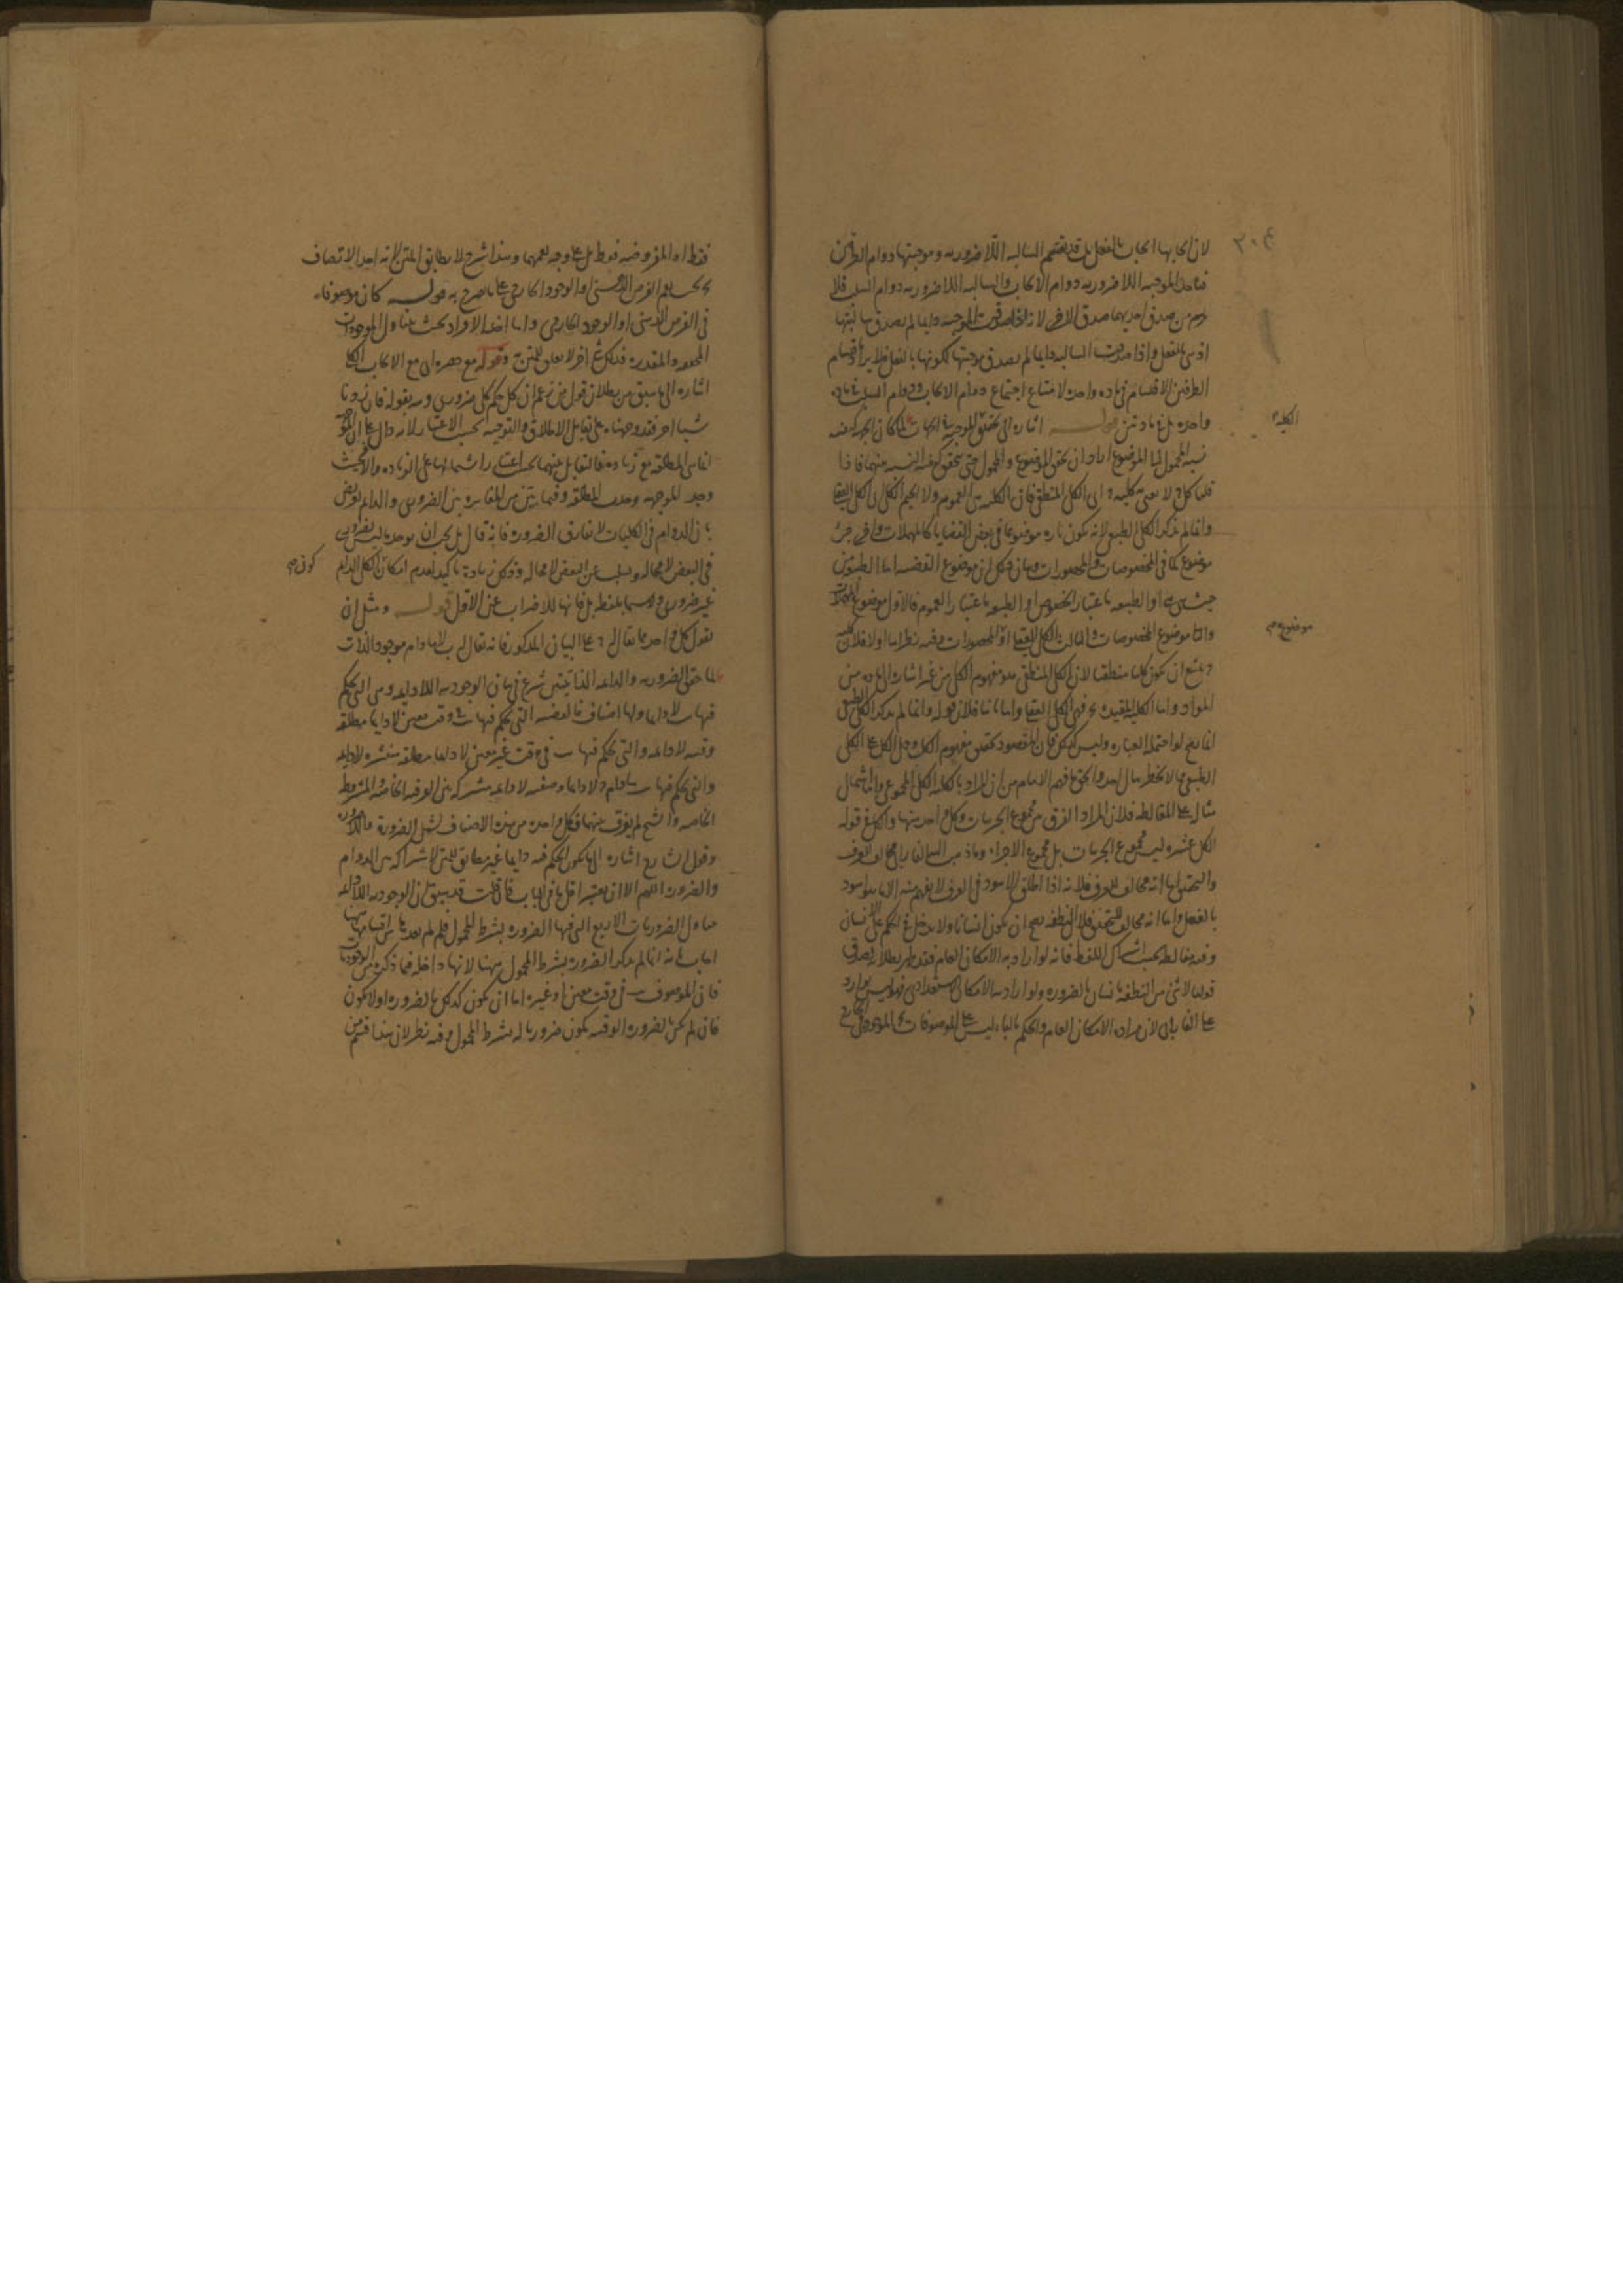 ٣٠٤
لان ايجابها ايجاب بالفعل بل قد يقتسم السالبه اللاضروريه وموجبتها دوام الطرفين
الموجبه اللا ضروريه دوام الايجاب والسالبه اللا ضروريه دوام السلب فلا
من صدق احديهما صدق الاخرى لانه اذا صدقت الموجبه دايما لم يصدق سالبتها
اذ هى بالفعل واذا صدقت السالبه دايما لم يصدق موجبتها لكونها بالفعل
الطرفين الاقسام فى ماده واحده لامتناع اجتماع دوام الايجاب ودوام السلب فى ماده
واحده بل فى مادتين قوله اشاره الى تحقيق الموجبه
الكليه
نسبه المحمول الى الموضوع اراد ان يحقق الموضوع والمحمول حتى يتحقق النسبه بينهما فاذا
قلنا كل ج لا نعنى به كليه ج اى الكلى المنطقى فان الكليه هى العموم ولا الجيم الكلى اى الكلى العقلى
وانما لم يذكر الكلى الطبيعى لانه يكون تاره موضوعا فى بعض القضايا كالمهملات واخرى جزء
موضوع كما فى المخصوصات والمحصورات وبيان ذلك ان موضوع القضيه اما الطبيعه من
حيث هى هى او الطبيعه باعتبار الخصوص او الطبيعه باعتبار العموم فالاول موضوع المهملات
والثانى موضوع المخصوصات والثالث الكلى العقلى او المحصورات وفيه نظر اما اولا فلان
موضوع
يمتنع ان يكون كليا منطقيا لان الكلى المنطقى هو مفهوم الكلى من غير اشاره الى ماده من
المواد واما الكليه المقيده بج فهى الكلى العقلى واما ثانيا فلان قوله وانما لم يذكر الكلى الطبيعى
انما يصح لو احتمله العباره وليس كذلك فان المقصود تحقيق مفهوم الكل وحمل الكل على الكلى
الطبيعى مما لا يخطر ببال احد والحق ما فهم الامام من ان المراد بالكليه الكل المجموعى
مثال على المغالطه فلان المراد الفرق بين مجموع الجزييات وكل واحد منها والكل فى قوله
الكل عشره ليس مجموع الجزييات بل مجموع الاجزاء وما ذهب اليه الفارابى مخالف للعرف
والتحقيق اما انه مخالف للعرف فلانه اذا اطلق الاسود فى العرف لا يفهم منه الا ما هو اسود
بالفعل واما انه مخالف للتحقيق فلان النطفه يصح ان يكون انسانا ولا يدخل فى الحكم على الانسان
وفيه مغالطه بحسب اشتراك اللفظ فانه لو اراد به الامكان العام فقد ظهر بطلانه لصدق
قولنا لا شئ من النطفه بانسان بالضروره ولو اراد به الامكان الاستعدادى فهو ليس بوارد
على الفارابى لان مراده الامكان العام والحكم بالباء ليس على الموصوفات بج الموجود فى الخارج
فقط او المفروضه فقط بل على وجه يعمهما وهذا شرح لا يطابق المتن لانه اخذ الاتصاف
بج بحسب الفرض الذهنى او الوجود الخارجى على ما صرح به قوله كان موصوفا
فى الفرض الذهنى او الوجود الخارجى واما اخذ الافراد بحيث يتناول الموجودات
المحققه والمقدره فذلك شئ اخر لا تعلق للمتن به وقوله مع حصره اى مع الايجاب الكلى
اشاره الى ما سبق من بطلان قول من زعم ان كل حكم كلى ضرورى وبه بقوله فان زدنا
شيئا اخر فقد وجهناه على تقابل الاطلاق والتوجيه بحسب الاعتبار لانه دال على ان
انما هى المطلقه مع زياده فالتقابل بينهما بحسب اعتبار اشتمالهما على الزياده والا فحيث
وجد الموجهه وجدت المطلقه وفيما بين من المغايره بين الضرورى والدايم تعريض
بان الدوام فى الكليات لا يفارق الضروره فانه قال بل يجب ان يوجد ما ليس بضرورى
فى البعض لا محاله ويسلب عن البعض لا محاله وذلك زياده تاكيد لعدم امكان الكلى الدايم
كون
غير ضرورى ولا سيما بلفظه بل فانها للاضراب عن الاول قوله ومثل ان
نقول كل واحد مما يقال له ج على البيان المذكور فانه يقال له ب لا ما دام موجود الذات
لما حقق الضروريه والدايمه الذاتيتين شرع فى بيان الوجوديه اللادايمه وهى التى يحكم
فيها ب لا دايما ولها اصناف فالقضيه التى يحكم فيها ب فى وقت معين لا دايما مطلقه
وقتيه لا دايمه والتى يحكم فيها ب فى وقت غير معين لا دايما مطلقه منتشره لا دايمه
والتى يحكم فيها ب ما دام ج لا دايما وصفيه لا دايمه مشتركه بين العرفيه الخاصه والمشروطه
الخاصه والشيخ لم يفرق بينهما فكل واحده من هذه الاصناف تشمل الضروره واللاضروره
وقول الشارح اشاره الى ما يكون الحكم فيه دايما غير مطابق للمتن لاشتراكه بين الدوام
والضروره اللهم الا ان يعتبر اقل ما فى الباب فان قلت قد سبق ان الوجوديه اللادايمه
يتناول الضروريات الاربع التى فيها الضروره بشرط المحمول فلم لم يعدها من اقسامها هنا
اجاب بانه انما لم يذكر الضروره بشرط المحمول ههنا لانها داخله فيما ذكره من الوجوديات
فان الموصوف ب فى وقت معين او غيره اما ان يكون كذلك بالضروره او لا يكون
فان لم يكن بالضروره الوقتيه يكون ضروريا له بشرط المحمول وفيه نظر لان هذا قسم من